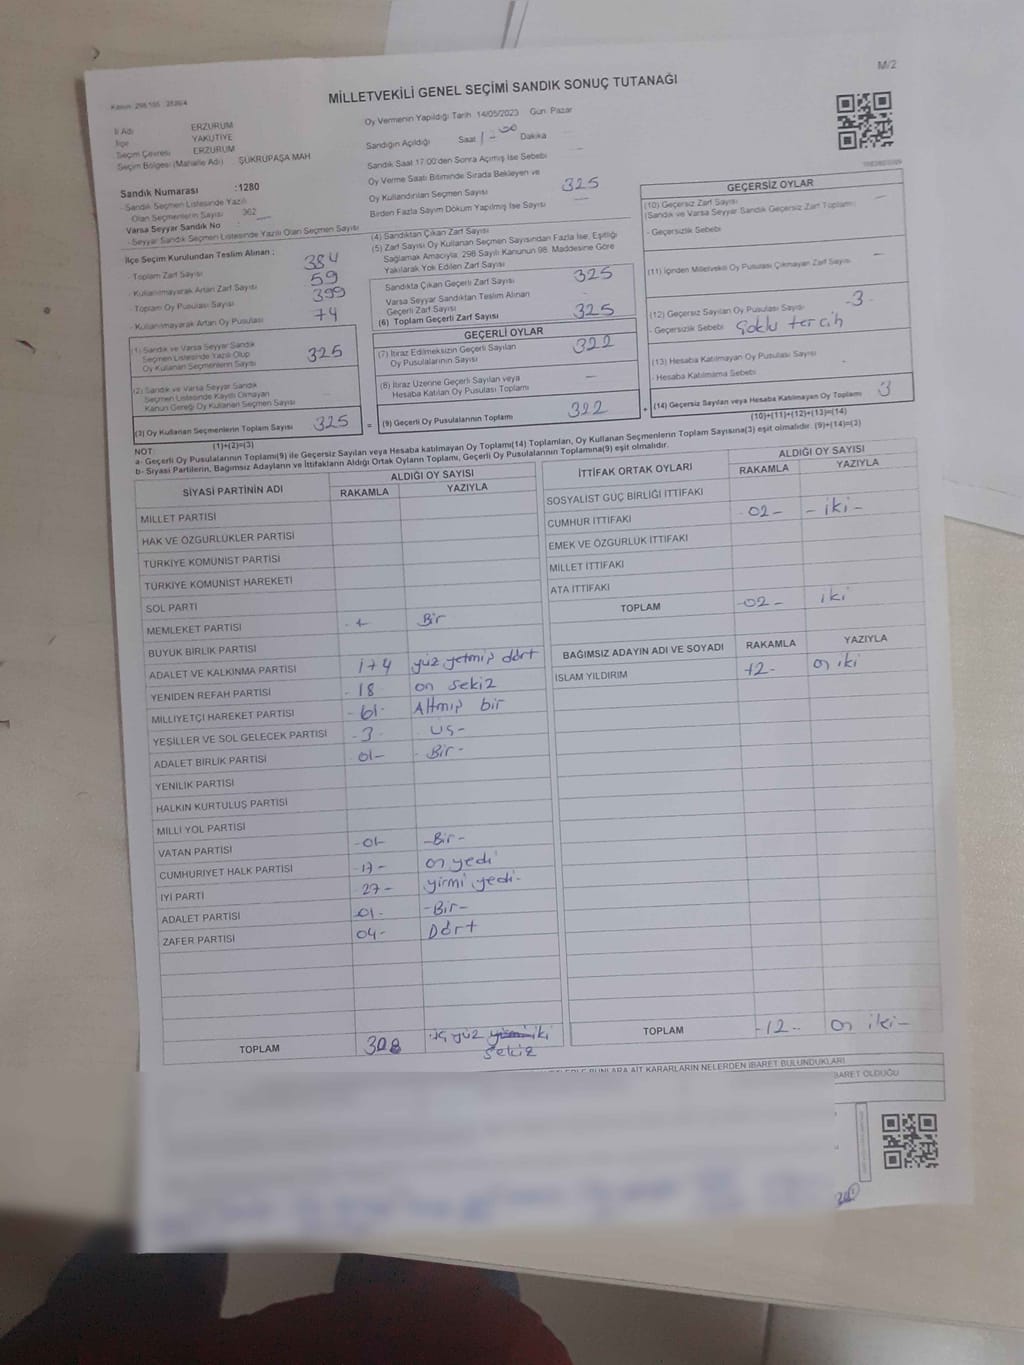 M/2
MİLLETVEKİLİ GENEL SEÇİMİ SANDIK SONUÇ TUTANAĞI
İl Adı ERZURUM
İlçe YAKUTİYE
Seçim Çevresi ERZURUM
Seçim Bölgesi (Mahalle Adı) ŞÜKRÜPAŞA MAH
Sandık Numarası :1280
- Sandık Seçmen Listesinde Yazılı
Olan Seçmenlerin Sayısı 362
Varsa Seyyar Sandık No
- Seyyar Sandık Seçmen Listesinde Yazılı Olan Seçmen Sayısı
Oy Vermenin Yapıldığı Tarih 14/05/2023 Gün: Pazar
Sandığın Açıldığı Saat Dakika
Sandık Saat 17:00'den Sonra Açılmış İse Sebebi
Oy Verme Saati Bitiminde Sırada Bekleyen ve
Oy Kullandırılan Seçmen Sayısı 325
Birden Fazla Sayım Döküm Yapılmış İse Sayısı
İlçe Seçim Kurulundan Teslim Alınan ;
- Toplam Zarf Sayısı 384
- Kullanılmayarak Artan Zarf Sayısı 59
- Toplam Oy Pusulası Sayısı 399
- Kullanılmayarak Artan Oy Pusulası 74
(1) Sandık ve Varsa Seyyar Sandık
Seçmen Listesinde Yazılı Olup
Oy Kullanan Seçmenlerin Sayısı 325
(2) Sandık ve Varsa Seyyar Sandık
Seçmen Listesinde Kayıtlı Olmayan
Kanun Gereği Oy Kullanan Seçmen Sayısı
(3) Oy Kullanan Seçmenlerin Toplam Sayısı 325
(1)+(2)=(3)
(4) Sandıktan Çıkan Zarf Sayısı
(5) Zarf Sayısı Oy Kullanan Seçmen Sayısından Fazla İse, Eşitliği
Sağlamak Amacıyla, 298 Sayılı Kanunun 98. Maddesine Göre
Yakılarak Yok Edilen Zarf Sayısı
Sandıkta Çıkan Geçerli Zarf Sayısı 325
Varsa Seyyar Sandıktan Teslim Alınan
Geçerli Zarf Sayısı
(6) Toplam Geçerli Zarf Sayısı 325
GEÇERLİ OYLAR
(7) İtiraz Edilmeksizin Geçerli Sayılan
Oy Pusulalarının Sayısı 322
(8) İtiraz Üzerine Geçerli Sayılan veya
Hesaba Katılan Oy Pusulası Toplamı –
= (9) Geçerli Oy Pusulalarının Toplamı 322
GEÇERSİZ OYLAR
(10) Geçersiz Zarf Sayısı
(Sandık ve Varsa Seyyar Sandık Geçersiz Zarf Toplamı) –
- Geçersizlik Sebebi
(11) İçinden Milletvekili Oy Pusulası Çıkmayan Zarf Sayısı –
(12) Geçersiz Sayılan Oy Pusulası Sayısı -3-
- Geçersizlik Sebebi Çoklu tercih
(13) Hesaba Katılmayan Oy Pusulası Sayısı
- Hesaba Katılmama Sebebi
+ (14) Geçersiz Sayılan veya Hesaba Katılmayan Oy Toplamı 3
(10)+(11)+(12)+(13)=(14)
NOT
a- Geçerli Oy Pusulalarının Toplamı(9) ile Geçersiz Sayılan veya Hesaba katılmayan Oy Toplamı(14) Toplamları, Oy Kullanan Seçmenlerin Toplam Sayısına(3) eşit olmalıdır. (9)+(14)=(3)
b- Siyasi Partilerin, Bağımsız Adayların ve İttifakların Aldığı Ortak Oyların Toplamı, Geçerli Oy Pusulalarının Toplamına(9) eşit olmalıdır.
SİYASİ PARTİNİN ADI ALDIĞI OY SAYISI
RAKAMLA YAZIYLA
MİLLET PARTİSİ
HAK VE ÖZGÜRLÜKLER PARTİSİ
TÜRKİYE KOMÜNİST PARTİSİ
TÜRKİYE KOMÜNİST HAREKETİ
SOL PARTİ
MEMLEKET PARTİSİ -1- Bir
BÜYÜK BİRLİK PARTİSİ
ADALET VE KALKINMA PARTİSİ 174 yüz yetmiş dört
YENİDEN REFAH PARTİSİ -18 on sekiz
MİLLİYETÇİ HAREKET PARTİSİ -61- Altmış bir
YEŞİLLER VE SOL GELECEK PARTİSİ -3- üç-
ADALET BİRLİK PARTİSİ 01- Bir-
YENİLİK PARTİSİ
HALKIN KURTULUŞ PARTİSİ
MİLLİ YOL PARTİSİ
VATAN PARTİSİ -01- -Bir-
CUMHURİYET HALK PARTİSİ -17- on yedi
İYİ PARTİ 27- yirmi yedi-
ADALET PARTİSİ -01- -Bir-
ZAFER PARTİSİ 04- Dört
TOPLAM 308 üç yüz sekiz
İTTİFAK ORTAK OYLARI ALDIĞI OY SAYISI
RAKAMLA YAZIYLA
SOSYALİST GÜÇ BİRLİĞİ İTTİFAKI
CUMHUR İTTİFAKI -02- -iki-
EMEK VE ÖZGÜRLÜK İTTİFAKI
MİLLET İTTİFAKI
ATA İTTİFAKI
TOPLAM -02- iki
BAĞIMSIZ ADAYIN ADI VE SOYADI RAKAMLA YAZIYLA
İSLAM YILDIRIM 12- on iki
TOPLAM -12- on iki-
BUNLARA AİT KARARLARIN NELERDEN İBARET BULUNDUKLARI
İBARET OLDUĞU